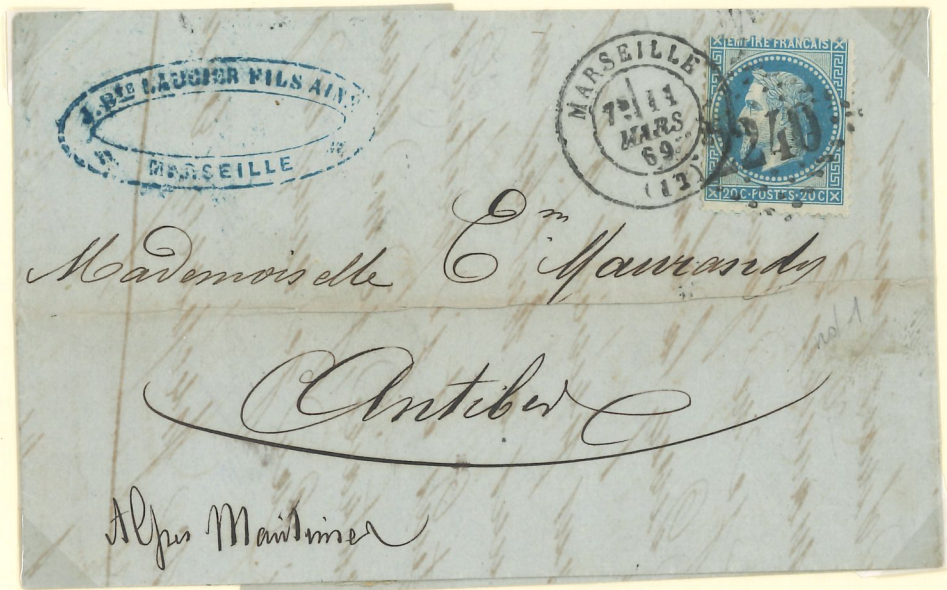 J. Bte LAUGIER FILS AINÉ
MARSEILLE
MARSEILLE
7E 11
MARS
69
(12)
EMPIRE FRANCAIS
2240
20 C - POSTES - 20 C
Mademoiselle Em Maurandy
Antibes
Alpes Maritimes
nd 1